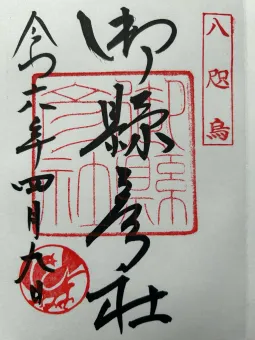 八咫烏
御縣彦社
令和六年四月九日
御縣
彦社